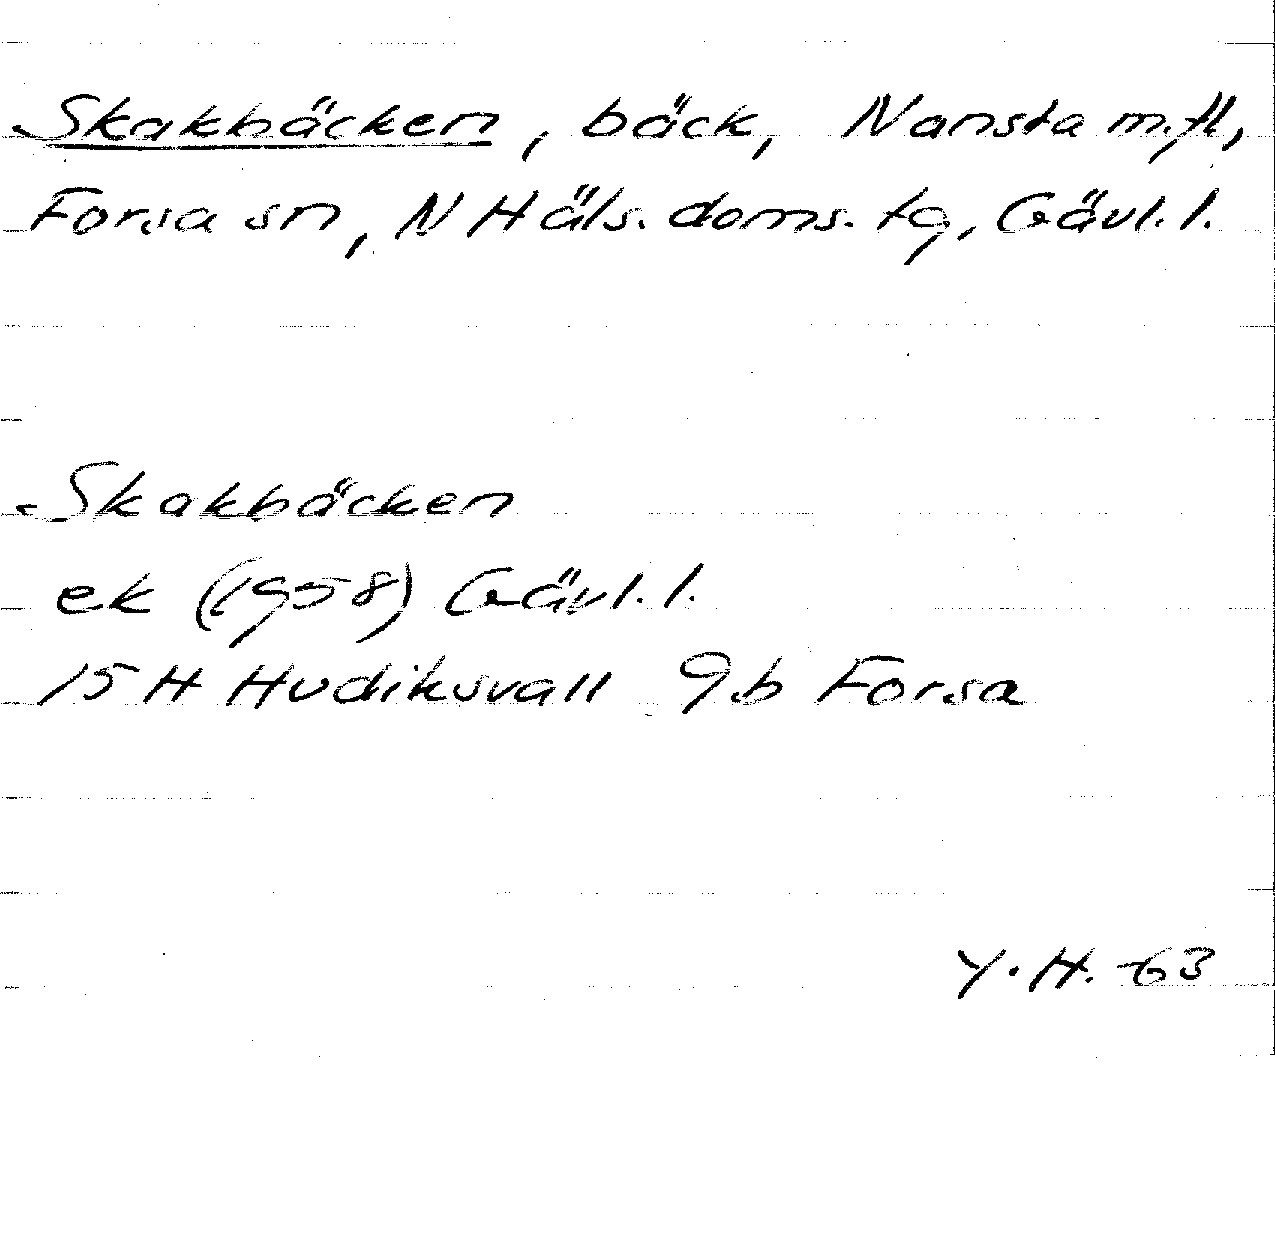 Skakbäcken, bäck, Nansta m.fl,
Forsa sn, N Häls. doms. tg, Gävl. l.
Skakbäcken
ek (1958) Gävl. l.
15 H Hudiksvall 9b Forsa
Y. H. -63